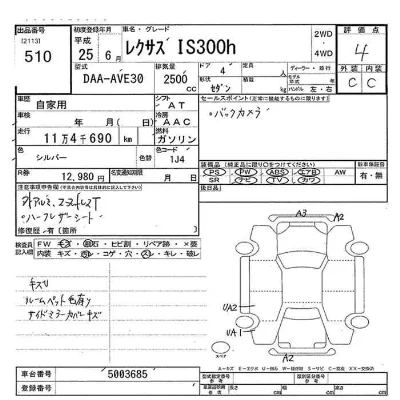 出品番号 初度登録年月 車名・グレード 2WD 評価点
(2113) 平成 レクサス IS300h 4WD 4
510 25年 6月
型式 排気量 ドア 4 定員 人 ディーラー・並行 外装 内装
DAA-AVE30 2500 cc 形状 セダン 積載 ハンドル 左・右 C C
車歴 自家用 シフト AT セールスポイント(正常に機能するものに限ります)
車検 年 月 日 冷房 AAC ・バックカメラ
走行 11万4千690 km 燃料 ガソリン
色 シルバー 色替 色コード 1J4
R券 12,980 円 名変期限 月 日
装備品(純正品に限り○をつけてください) 新車保証書
PS PW ABS エアB AW 有・無
SR ナビ TV カワ
後日品
注意事項申告欄
ハーフレザーシート
修復歴:有(箇所 )
検査員記入欄 FW キズ・飛石・ヒビ割・リペア跡・×要
内装 キズ・汚レ・コゲ・穴・スレ・キレ・破レ
キズU
ルームペット毛有り
サイドミラーカバーキズ
A3 A2
UA2
UA1
A2
スペア
車台番号 5003685
登録番号
長さ cm 幅 cm 高さ cm